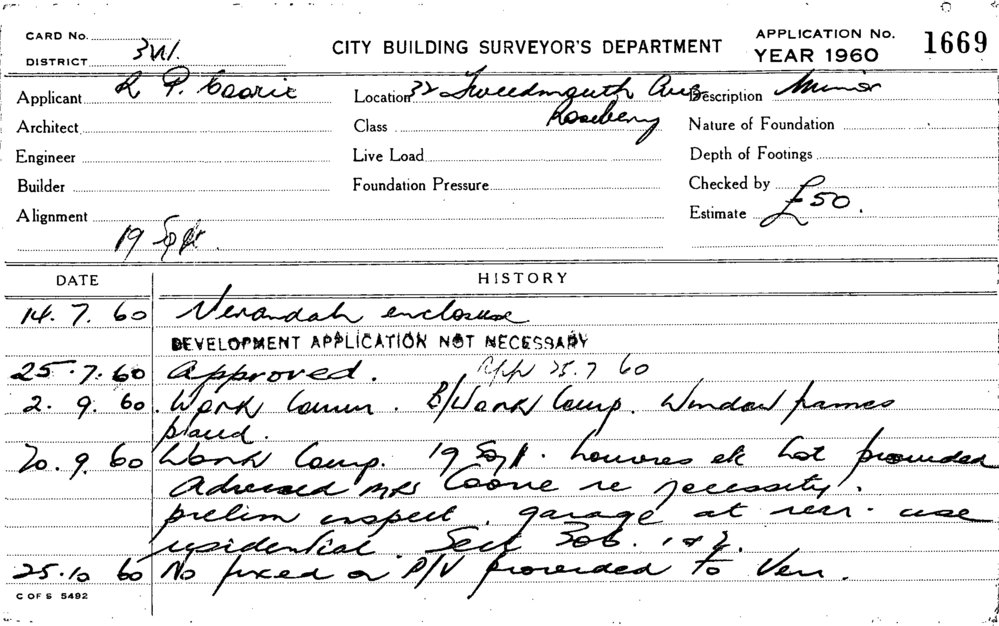 CARD No.
DISTRICT 3W.
CITY BUILDING SURVEYOR'S DEPARTMENT
APPLICATION No. 1669
YEAR 1960
Applicant R P.
Location 32 Tweedmouth Ave
Rosebery
Description Minor
Architect
Class
Nature of Foundation
Engineer
Live Load
Depth of Footings
Builder
Foundation Pressure
Checked by
Alignment
Estimate £50.
19 Sqft.
DATE HISTORY
14. 7. 60 Verandah enclosure
DEVELOPMENT APPLICATION NOT NECESSARY
25. 7. 60 Approved. App 25.7 60
2. 9. 60. Work Comm. B/Work Comp. Window frames
placed.
20. 9. 60 Work Comp. 19 Sqft. louvres etc not provided
Advised Mrs re necessity.
prelim inspect. garage at rear. use
residential. Sect 306. 1 & 2.
25. 10 60 No fixed or P/V provided to Ver.
C OF S 5492